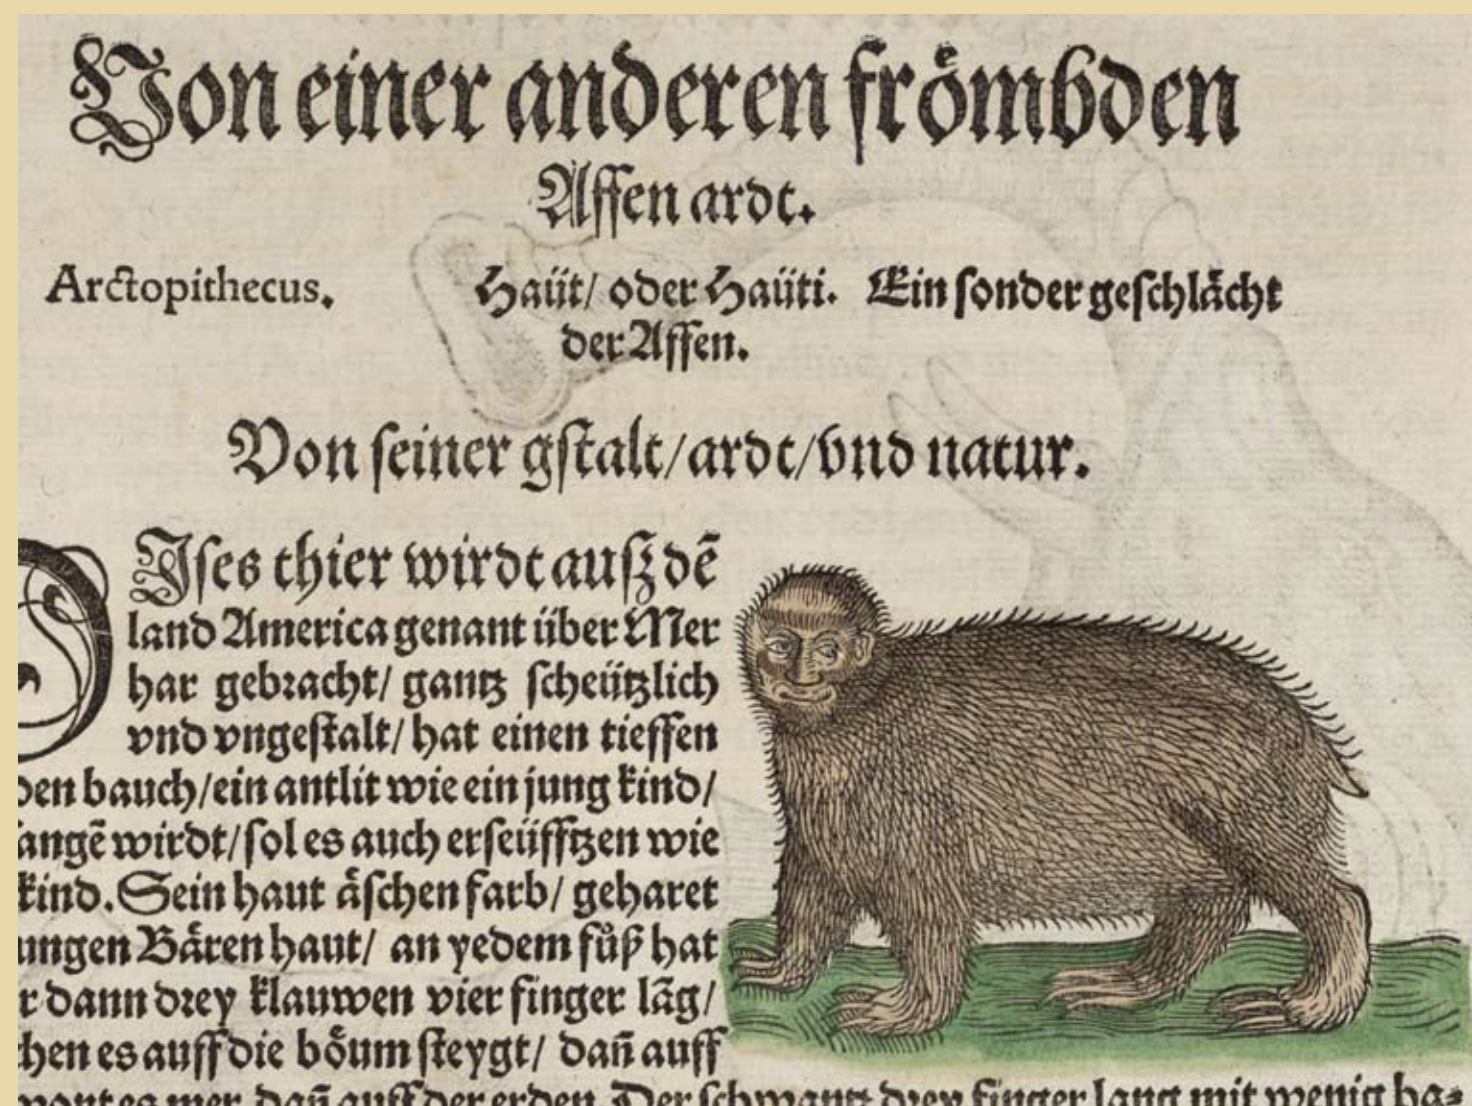 Von einer anderen frömbden
Affen ardt.
Arctopithecus. Haüt/ oder Haüti. Ein sonder geschlächt
der Affen.
Von seiner gstalt/ardt/vnd natur.
DIses thier wirdt aufz dē
land America genant über Mer
har gebracht/ gantz scheützlich
vnd vngestalt/ hat einen tieffen
den bauch/ein antlit wie ein jung kind/
angē wirdt/sol es auch erseüfftzen wie
kind. Sein haut äschen farb/ geharet
ungen Bären haut/ an yedem fůß hat
r dann drey klauwen vier finger lãg/
chen es auff die böum steygt/ dañ auff
wont es mer dañ auff der erden. Der schwantz drey finger lang mit wenig ha⸗